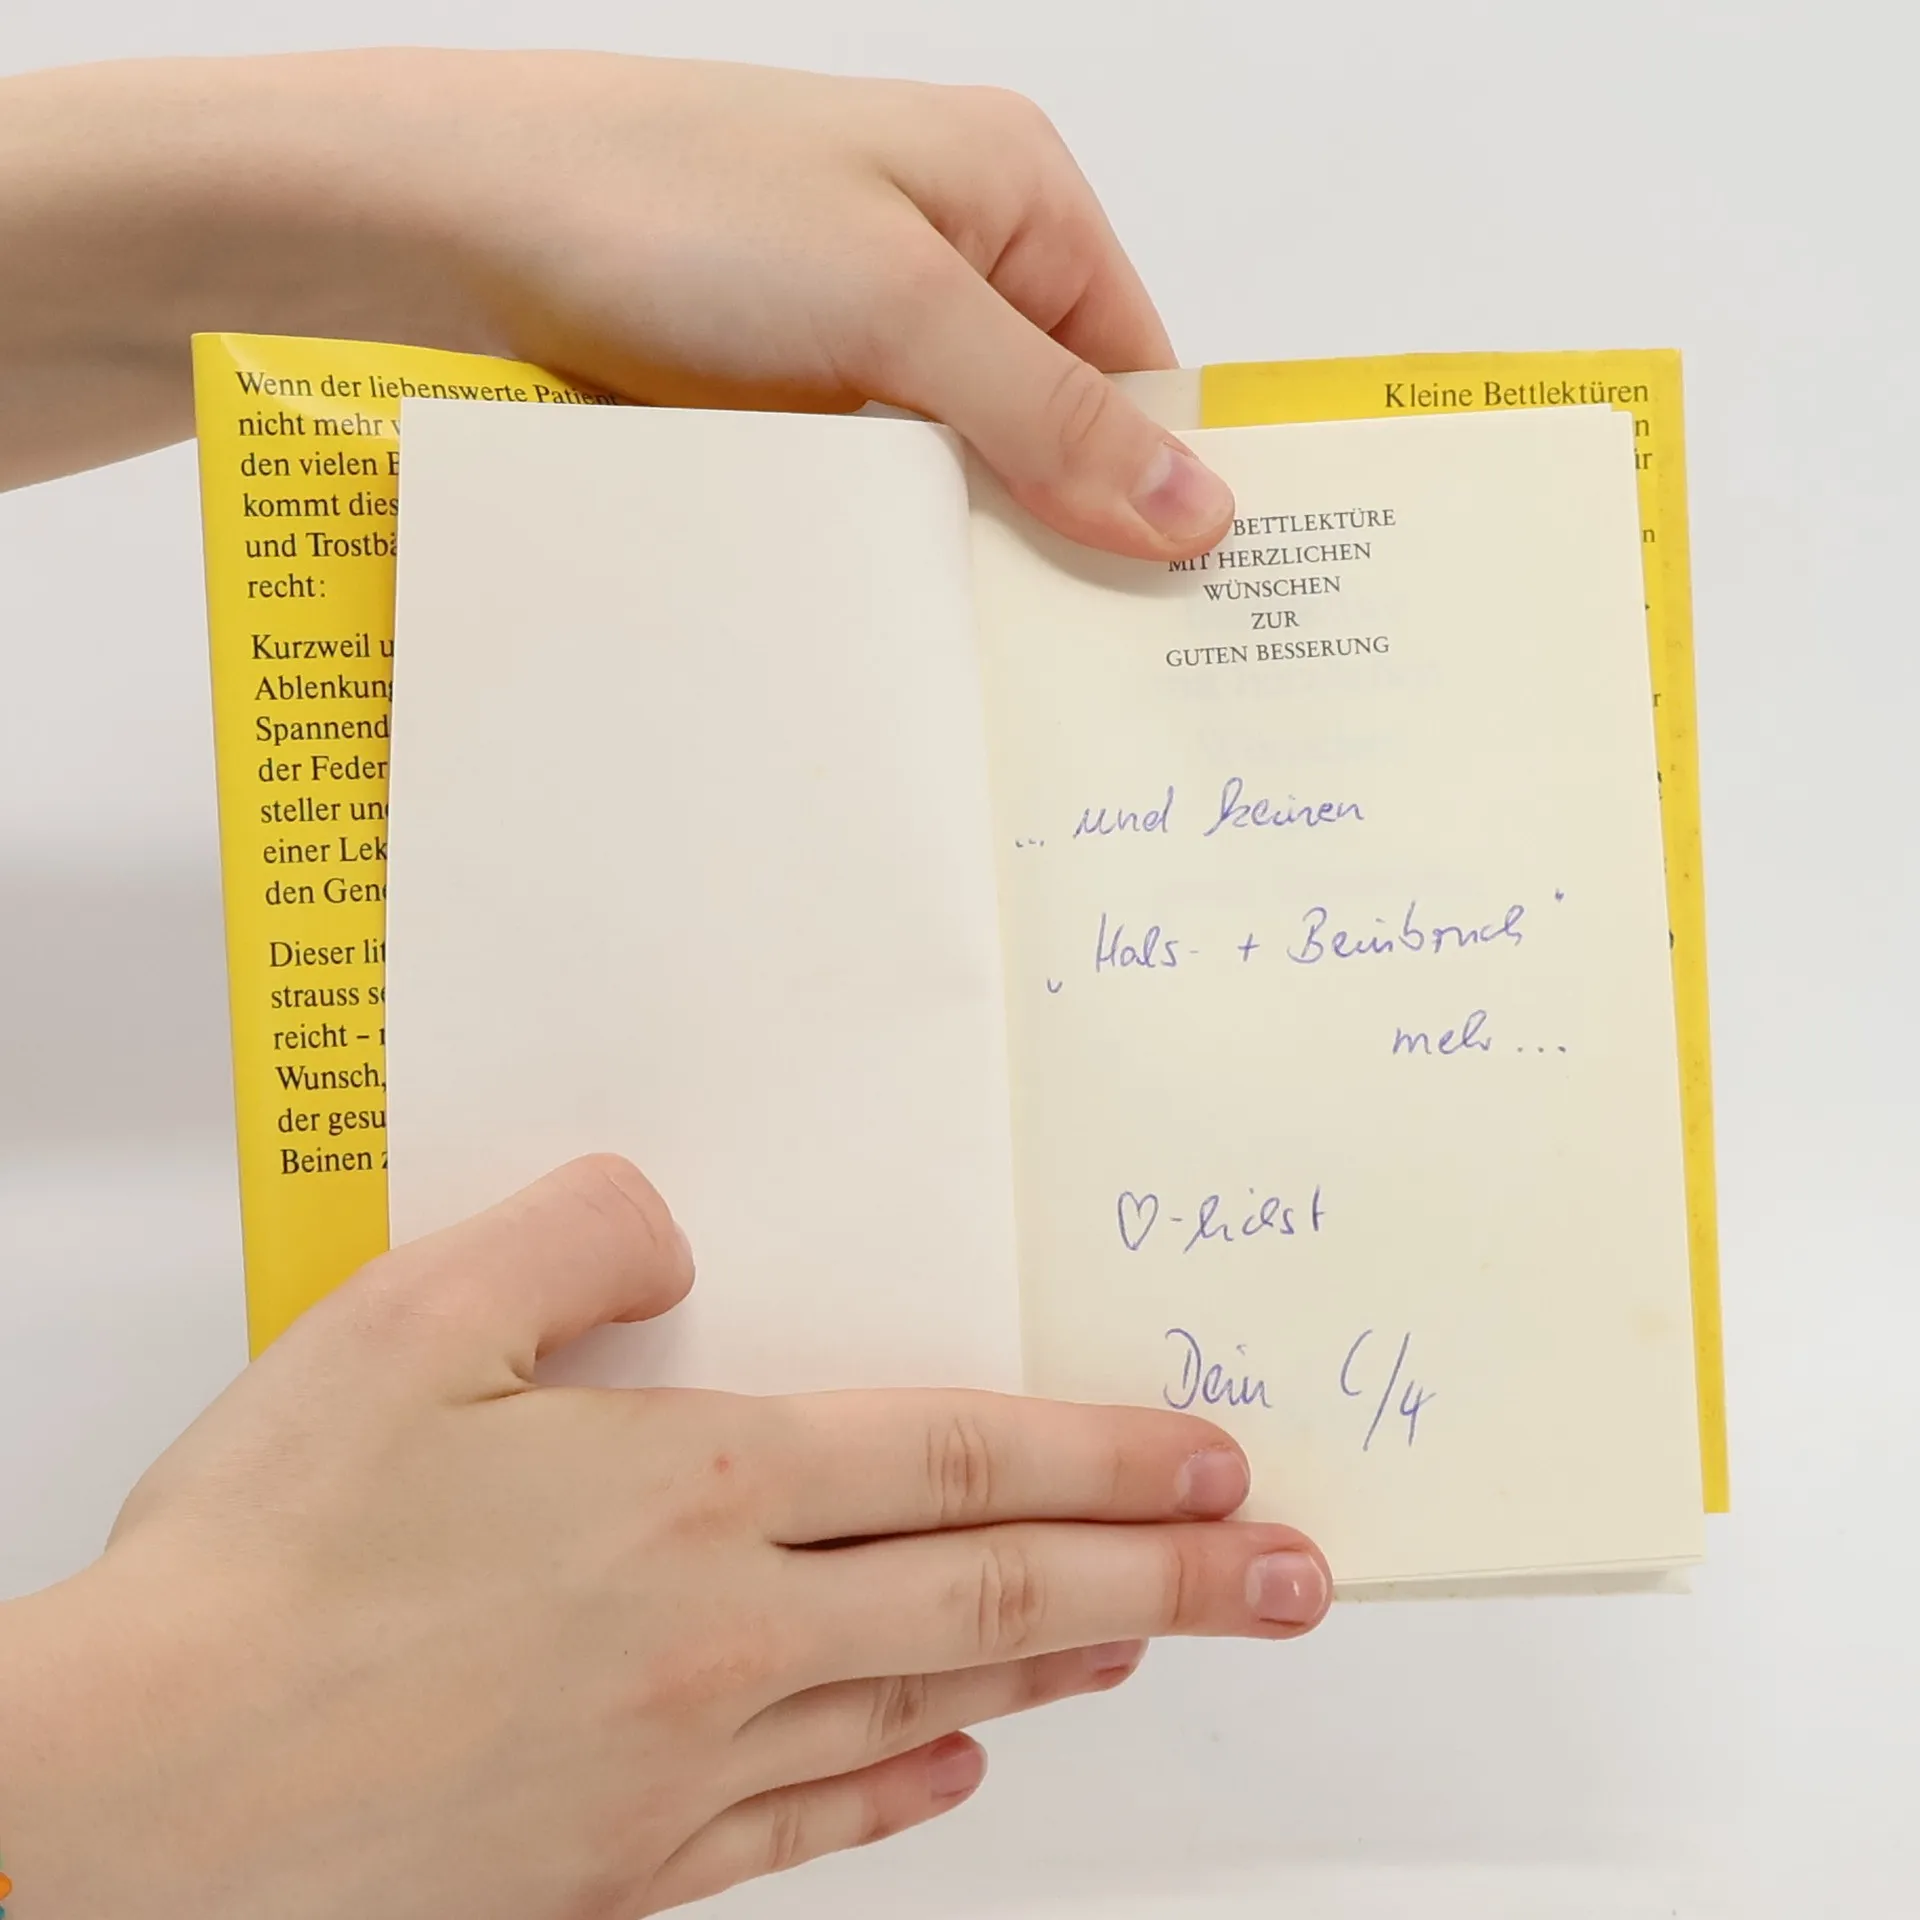 Wenn der liebenswerte Patient
nicht mehr
den vielen
kommt dies
und Trostbä
recht:
Kurzweil u
Ablenkung
Spannend
der Feder
steller und
einer Lek
den Gene
Dieser lit
strauss se
reicht –
Wunsch,
der gesu
Beinen z
Kleine Bettlektüren
n
ür
n
r
BETTLEKTÜRE
MIT HERZLICHEN
WÜNSCHEN
ZUR
GUTEN BESSERUNG
... und keinen
„Hals- + Beinbruch"
mehr ...
♡-lichst
Dein